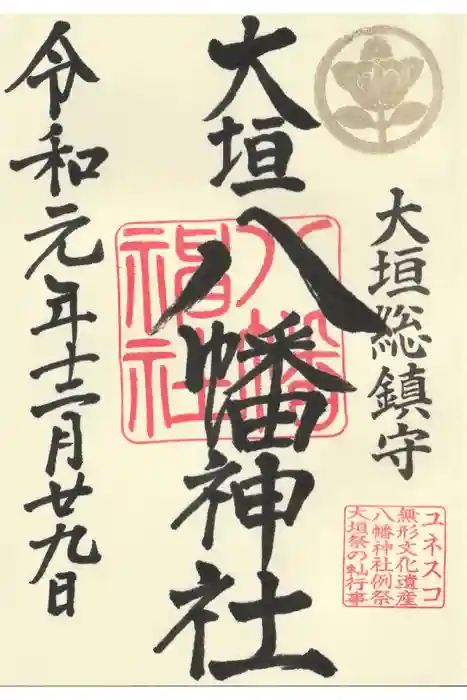 大垣総鎮守
ユネスコ
無形文化遺産
八幡神社例祭
大垣祭の䡄行事
大垣八幡神社
八幡
神社
令和元年十二月廿九日